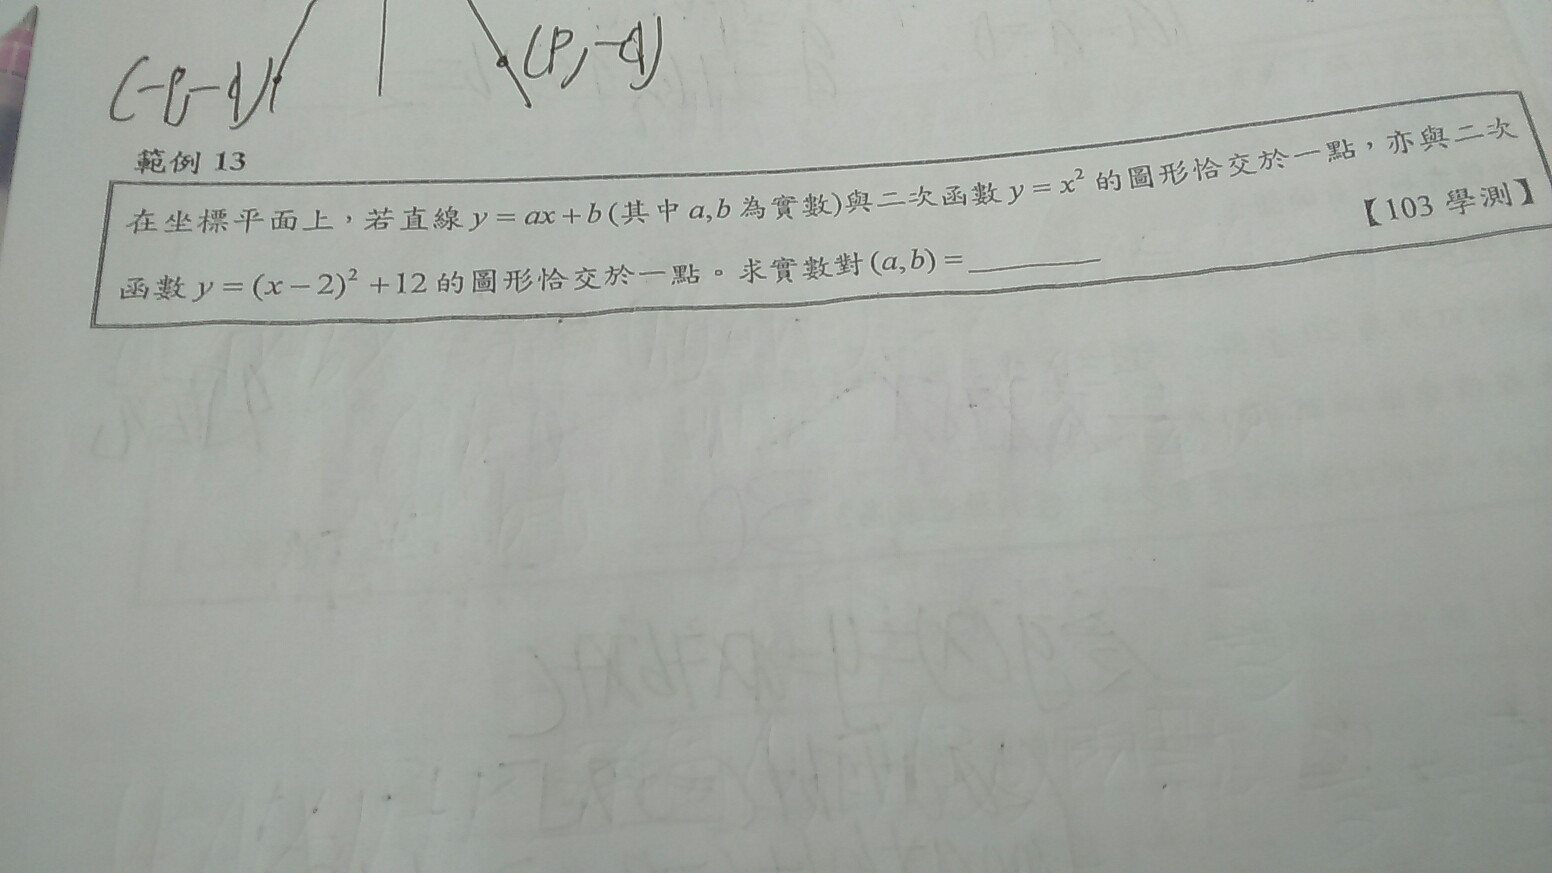 (-p,-q)
(p,-q)
範例 13
在坐標平面上，若直線 y = ax + b (其中 a,b 為實數)與二次函數 y = x² 的圖形恰交於一點，亦與二次
函數 y = (x − 2)² + 12 的圖形恰交於一點。求實數對 (a,b) = ________
【103 學測】